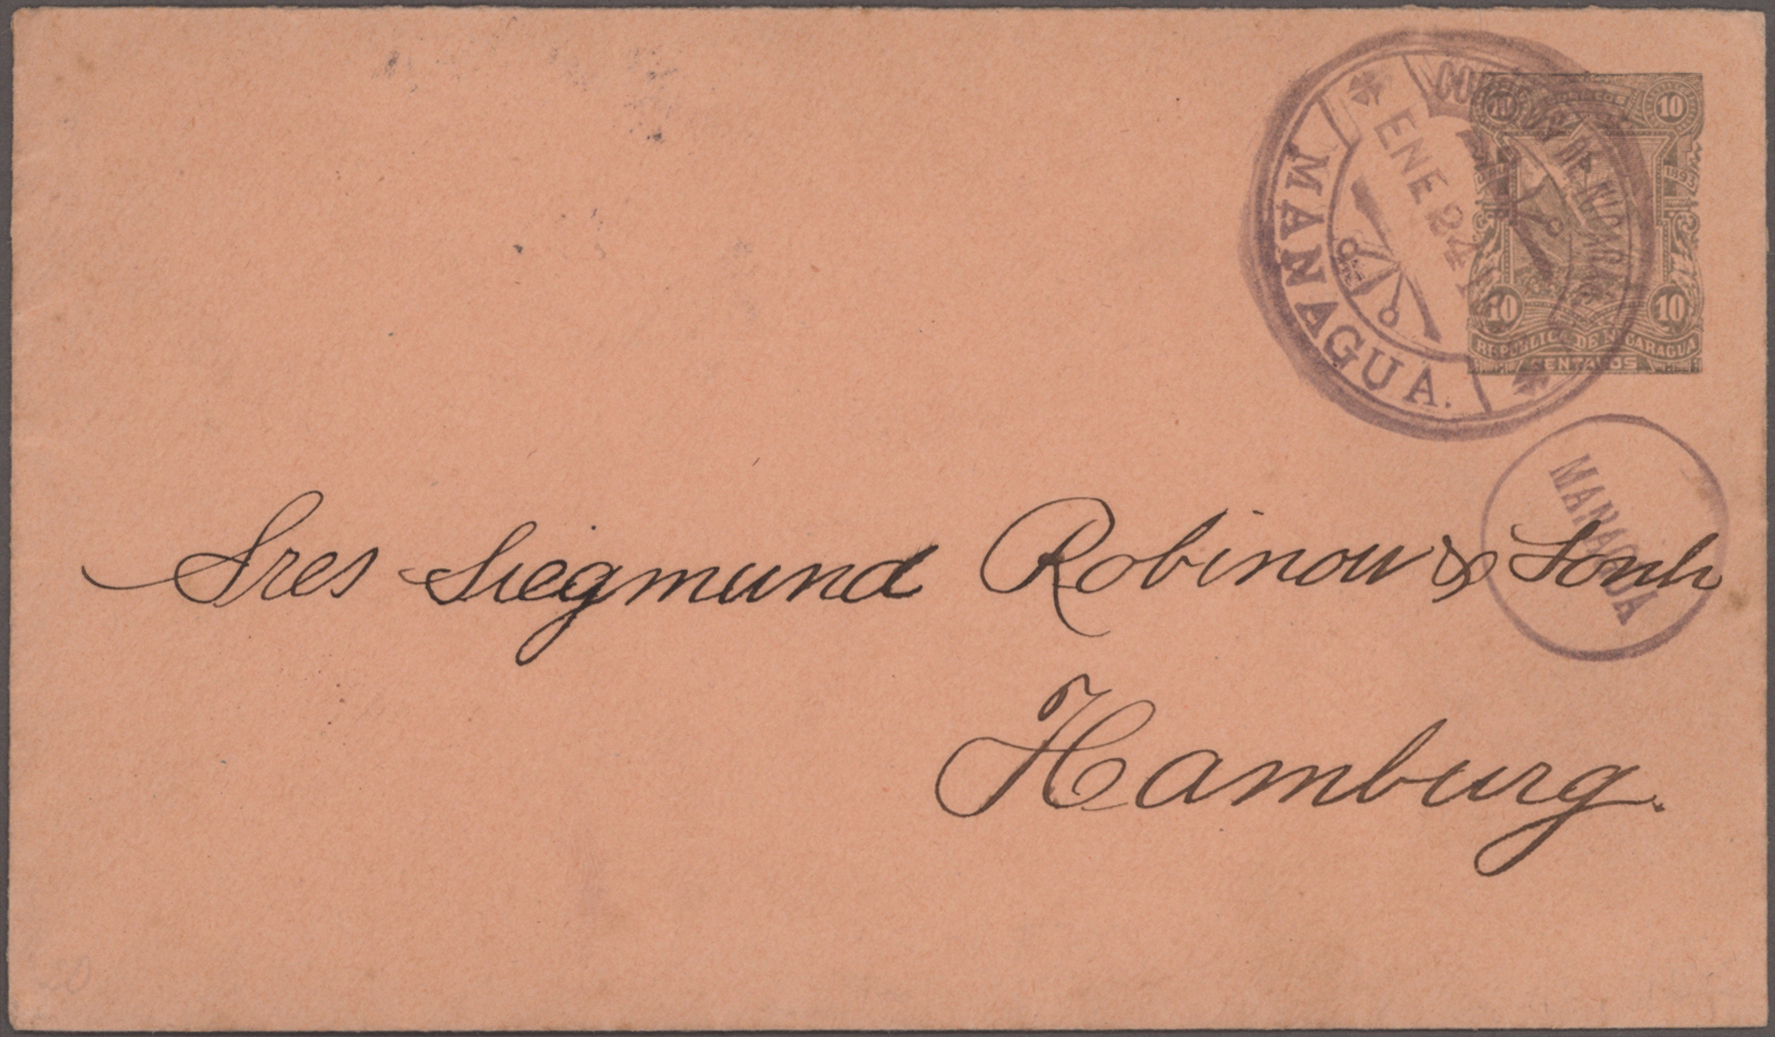 CORREOS DE NICARAGUA
ENE 24
MANAGUA.
10 CORREOS 10
1893
10 10
REPUBLICA DE NICARAGUA
CENTAVOS
MANAGUA
Sres Siegmund Robinow & Sohn
Hamburg.